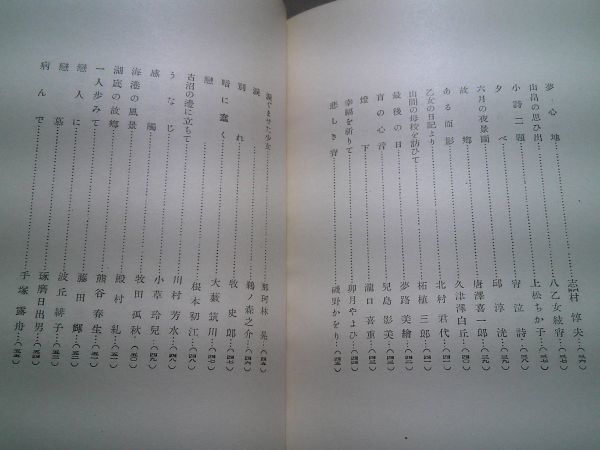 夢心地……志村惇夫…(三六)
山畠の思ひ出……八乙女綾宵…(三七)
小詩二題……上松ちか子…(三七)
夕べ……邱淳洸…(三八)
六月の夜景圖……宵泣詩…(三九)
故鄕……唐澤喜一郎…(三九)
ある面影……久津澤白丘…(四〇)
乙女の日記より……北村君代…(四一)
山間の母校を訪ひて……柘植三郎…(四一)
最後の日……夢路美繪…(四二)
宵の心音……兒島影美…(四三)
燈下……瀧口喜重…(四三)
幸福を祈りて……卯月やよひ…(四四)
悲しき宵……磯野かをり…(四五)
淚ぐませた少女……那珂林晃…(四五)
淚……鵜ノ森之介…(四六)
別れ……牧史郞…(四七)
暗に蠢く……大藪筑川…(四七)
戀……根本初江…(四八)
古沼の邊に立ちて……川村芳水…(四八)
うなじ……小草玲兒…(四九)
感觸……牧田孤秋…
海港の風景……殿村
湖底の故鄕……熊谷春生
一人步みて……藤田輝
戀人に……波丘緋子
戀慕……琢磨日出男
病んで……手塚露舟